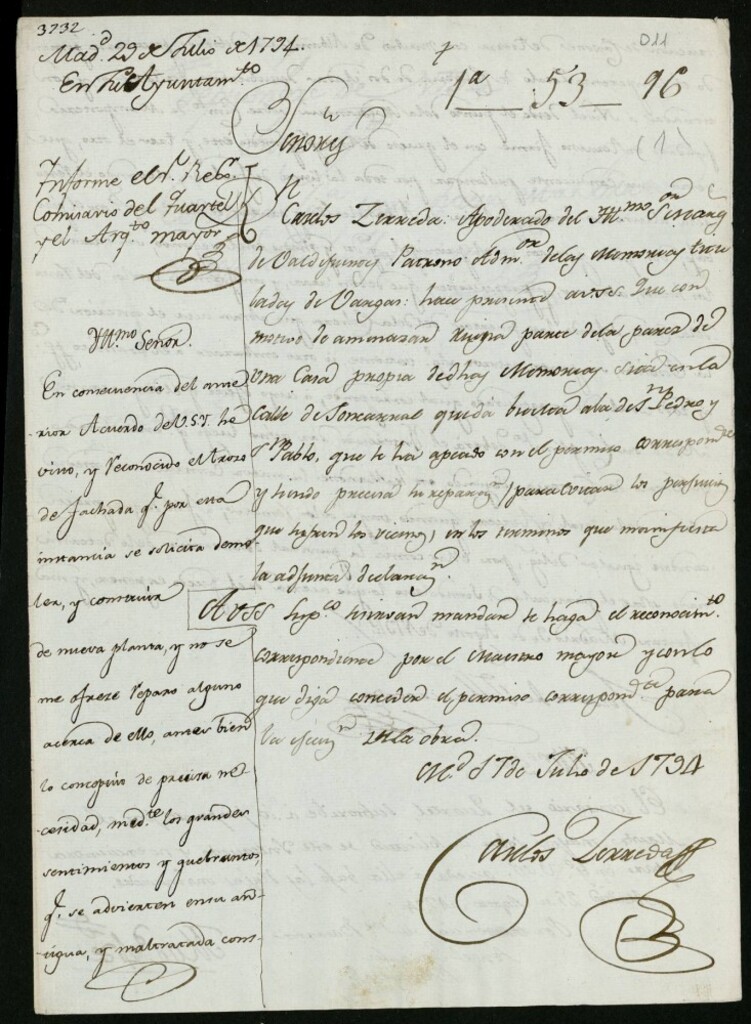 3732
011
Mad.d 29 de Julio de 1794.
En su Ayuntam.to
1a 53 96
(1)
Señores
Informe el S.r Reg.or
Comisario del Quartel
y el Arq.to mayor
Yll.mo Señor.
En consecuencia del ante
rior Acuerdo de V.S.Y. he
visto, y reconocido el trozo
de fachada q.e por esta
instancia se solicita demo
ler, y construir
de nueva planta, y no se
me ofreze reparo alguno
acerca de ello, antes bien
lo conceptuo de precisa ne
cesidad, med.te los grandes
sentimientos y quebrantos
q.e se advierten en su an
tigua, y maltratada cons-
Carlos Zerreda: Apoderado del Yll.mo Señor
de Valdefuentes Patrono Adm.or de las Memorias
de Vargas: hace presente a VSS. Que con
motivo de amenazar ruyna parte de la pared de
una Casa propia de dhas Memorias sita en la
Calle de Foncarral que da buelta a la de S.n Pedro y
S.n Pablo, que se ha apeado con el permiso correspond.te
y siendo precisa su reparaz.n para evitar los perjuicios
que sufren los vecinos, en los terminos que manifiesta
la adjunta declaraz.n
A VSS sup.co se sirvan mandar se haga el reconocim.to
correspondiente por el Maestro mayor y con lo
que diga conceder el permiso correspond.te para
la execuz.n de la obra.
M.d 17 de Julio de 1794
Carlos Zerreda